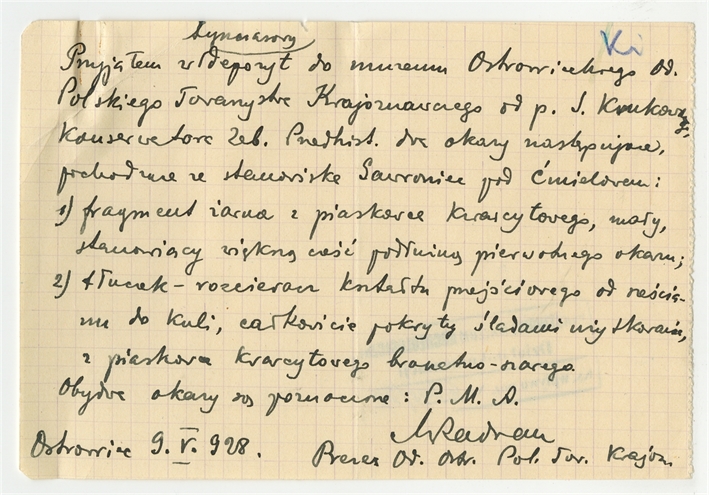 Ki
tymczasowy
Przyjąłem w depozyt do muzeum Ostrowieckiego Od.
Polskiego Towarzystwa Krajoznawczego od p. S. Krukowskiego,
Konserwatora Zab. Przedhist. dwa okazy następujące,
pochodzące ze stanowiska Gawroniec pod Ćmielowem:
1) fragment żarna z piaskowca kwarcytowego, mały,
stanowiący większą część podłużną pierwotnego okazu;
2) tłuczek – rozcieracz kształtu przejściowego od sześcia-
nu do kuli, całkowicie pokryty śladami wyskorzeń,
z piaskowca kwarcytowego brunetno-szarego
Obydwa okazy są poznaczone: P. M. A.
Ostrowiec 9. V. 928.
MRadwan
Prezes Od. Ostr. Pol. Tow. Krajozn.